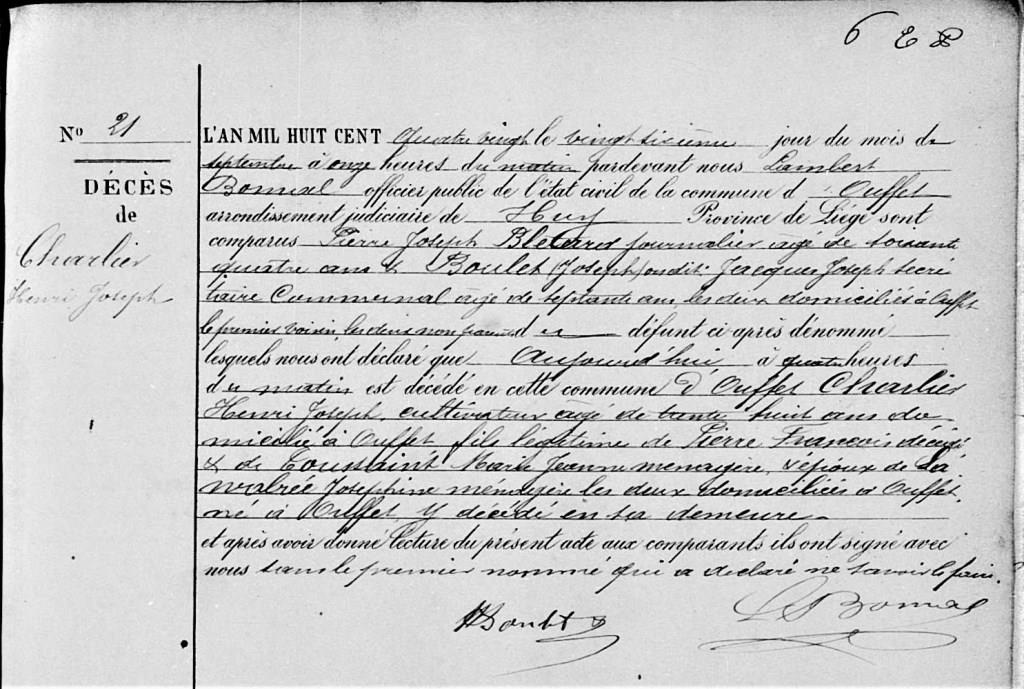 6 E
Nº 21
DÉCÈS
de
Charlier
Henri Joseph
L'AN MIL HUIT CENT quatre vingt le vingt sixième jour du mois de
septembre à onze heures du matin pardevant nous Lambert
Bonmal officier public de l'état civil de la commune d'Ouffet
arrondissement judiciaire de Huy Province de Liége sont
comparus Pierre Joseph Bletard journalier âgé de soixante
quatre ans & Boulet (Joseph) on dit: Jacques Joseph secré
taire Communal âgé de septante ans, les deux domiciliés à Ouffet
le premier voisin, les deux non parents du défunt ci après dénommé
lesquels nous ont déclaré que aujourd'hui à quatre heures
du matin est décédé en cette commune d'Ouffet Charlier
Henri Joseph, cultivateur âgé de trente huit ans do
micilié à Ouffet fils légitime de Pierre François décédé
& de Toussaint Marie Jeanne menagère, & époux de La
walrée Josephine ménagère les deux domiciliées à Ouffet,
né à Ouffet y décédé en sa demeure
et après avoir donné lecture du présent acte aux comparants ils ont signé avec
nous sauf le premier nommé qui a declaré ne savoir le faire.
Boulet
L Bonmal